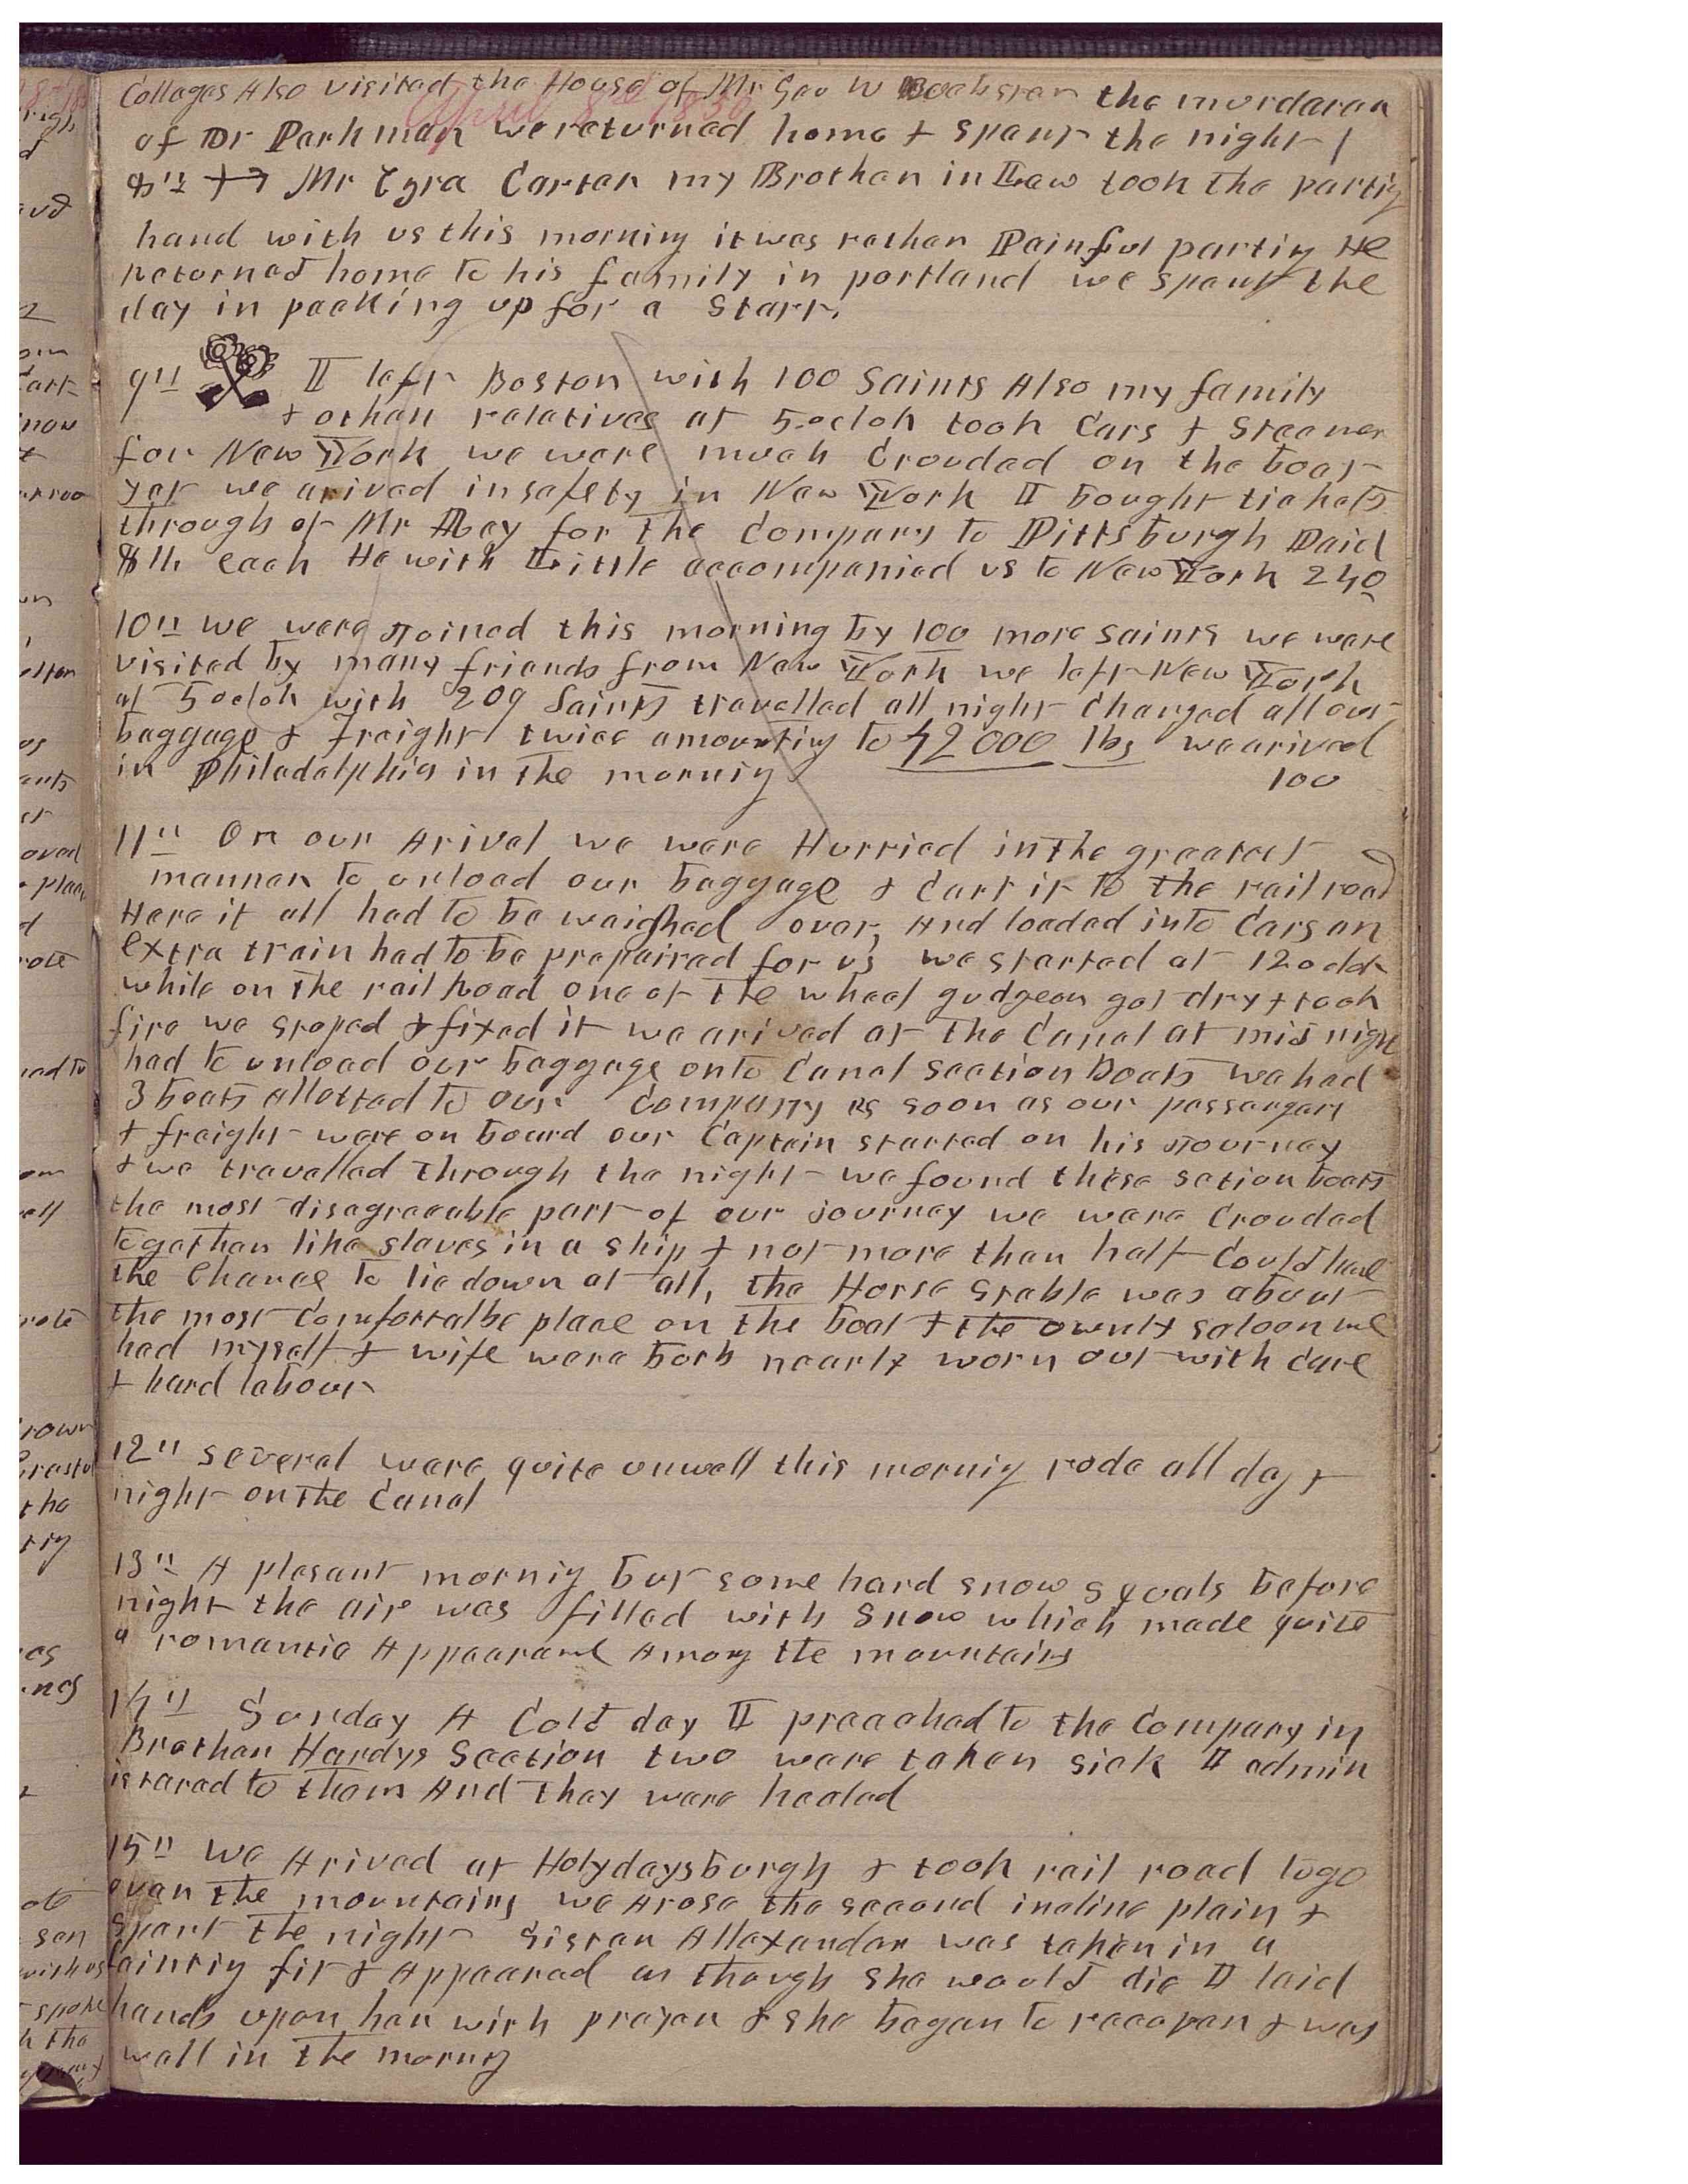 April 8th 1850
Collages Also visited the House of Mr Geo W Webster the murderer
of Dr Parkman we returned home & spent the night
8th Mr Ezra Carter my Brother in Law took the parting
hand with us this morning it was rather Painful parting He
returned home to his family in portland we spent the
day in packing up for a Start.
9th I left Boston with 100 Saints Also my family
& other relatives at 5 oclok took Cars & Steemer
for New York we were much Crouded on the boat
yet we arived in safety in New York I bought tickets
through of Mr Alley for the Company to Pittsburgh Paid
$11. each He with Little accompanied us to New York 240
10th we were Joined this morning by 100 more saints we were
visited by many friends from New York we left New York
at 5 oclok with 209 Saints travelled all night Charged all our
baggage & Freight twice amounting to 42000 lbs we arived
in Philadelphia in the morning 100
11th On our Arival we were Hurried in the greatest
manner to unload our baggage & Cart it to the rail road
Here it all had to be waighed over, And loaded into Cars an
extra train had to be prepaired for us we started at 12 oclok
while on the rail Road one of the wheel gudgeon got dry & took
fire we stoped & fixed it we arived at the Canal at mid night
had to unload our baggage onto Canal Section Boats we had
3 boats allotted to our Company as soon as our passengers
& freight were on board our Captain started on his Journey
& we travelled through the night we found these section boats
the most disagreeable part of our journey we were Crouded
together like slaves in a ship & not more than half Could have
the Chance to lie down at all, the Horse Stable was about
the most Comfortalbe place on the boat & the ownly saloon we
had myself & wife were both nearly worn out with care
& hard labour
12th several were quite unwell this morning rode all day &
night on the Canal
13th A plesant morning but some hard snow squals before
night the air was filled with Snow which made quite
a romantic Appearance Among the mountains
14th Sunday A Cold day I preached to the Company in
Brother Hardys Section two were taken sick I admin
istered to them And they were healed
15th we Arived at Holydaysburgh & took rail road to go
over the mountains we Arose the second incline plain &
spent the night Sister Allexander was taken in a
fainting fit & Appeared as though she would die I laid
hands upon her with prayer & she began to recover & was
well in the mornng